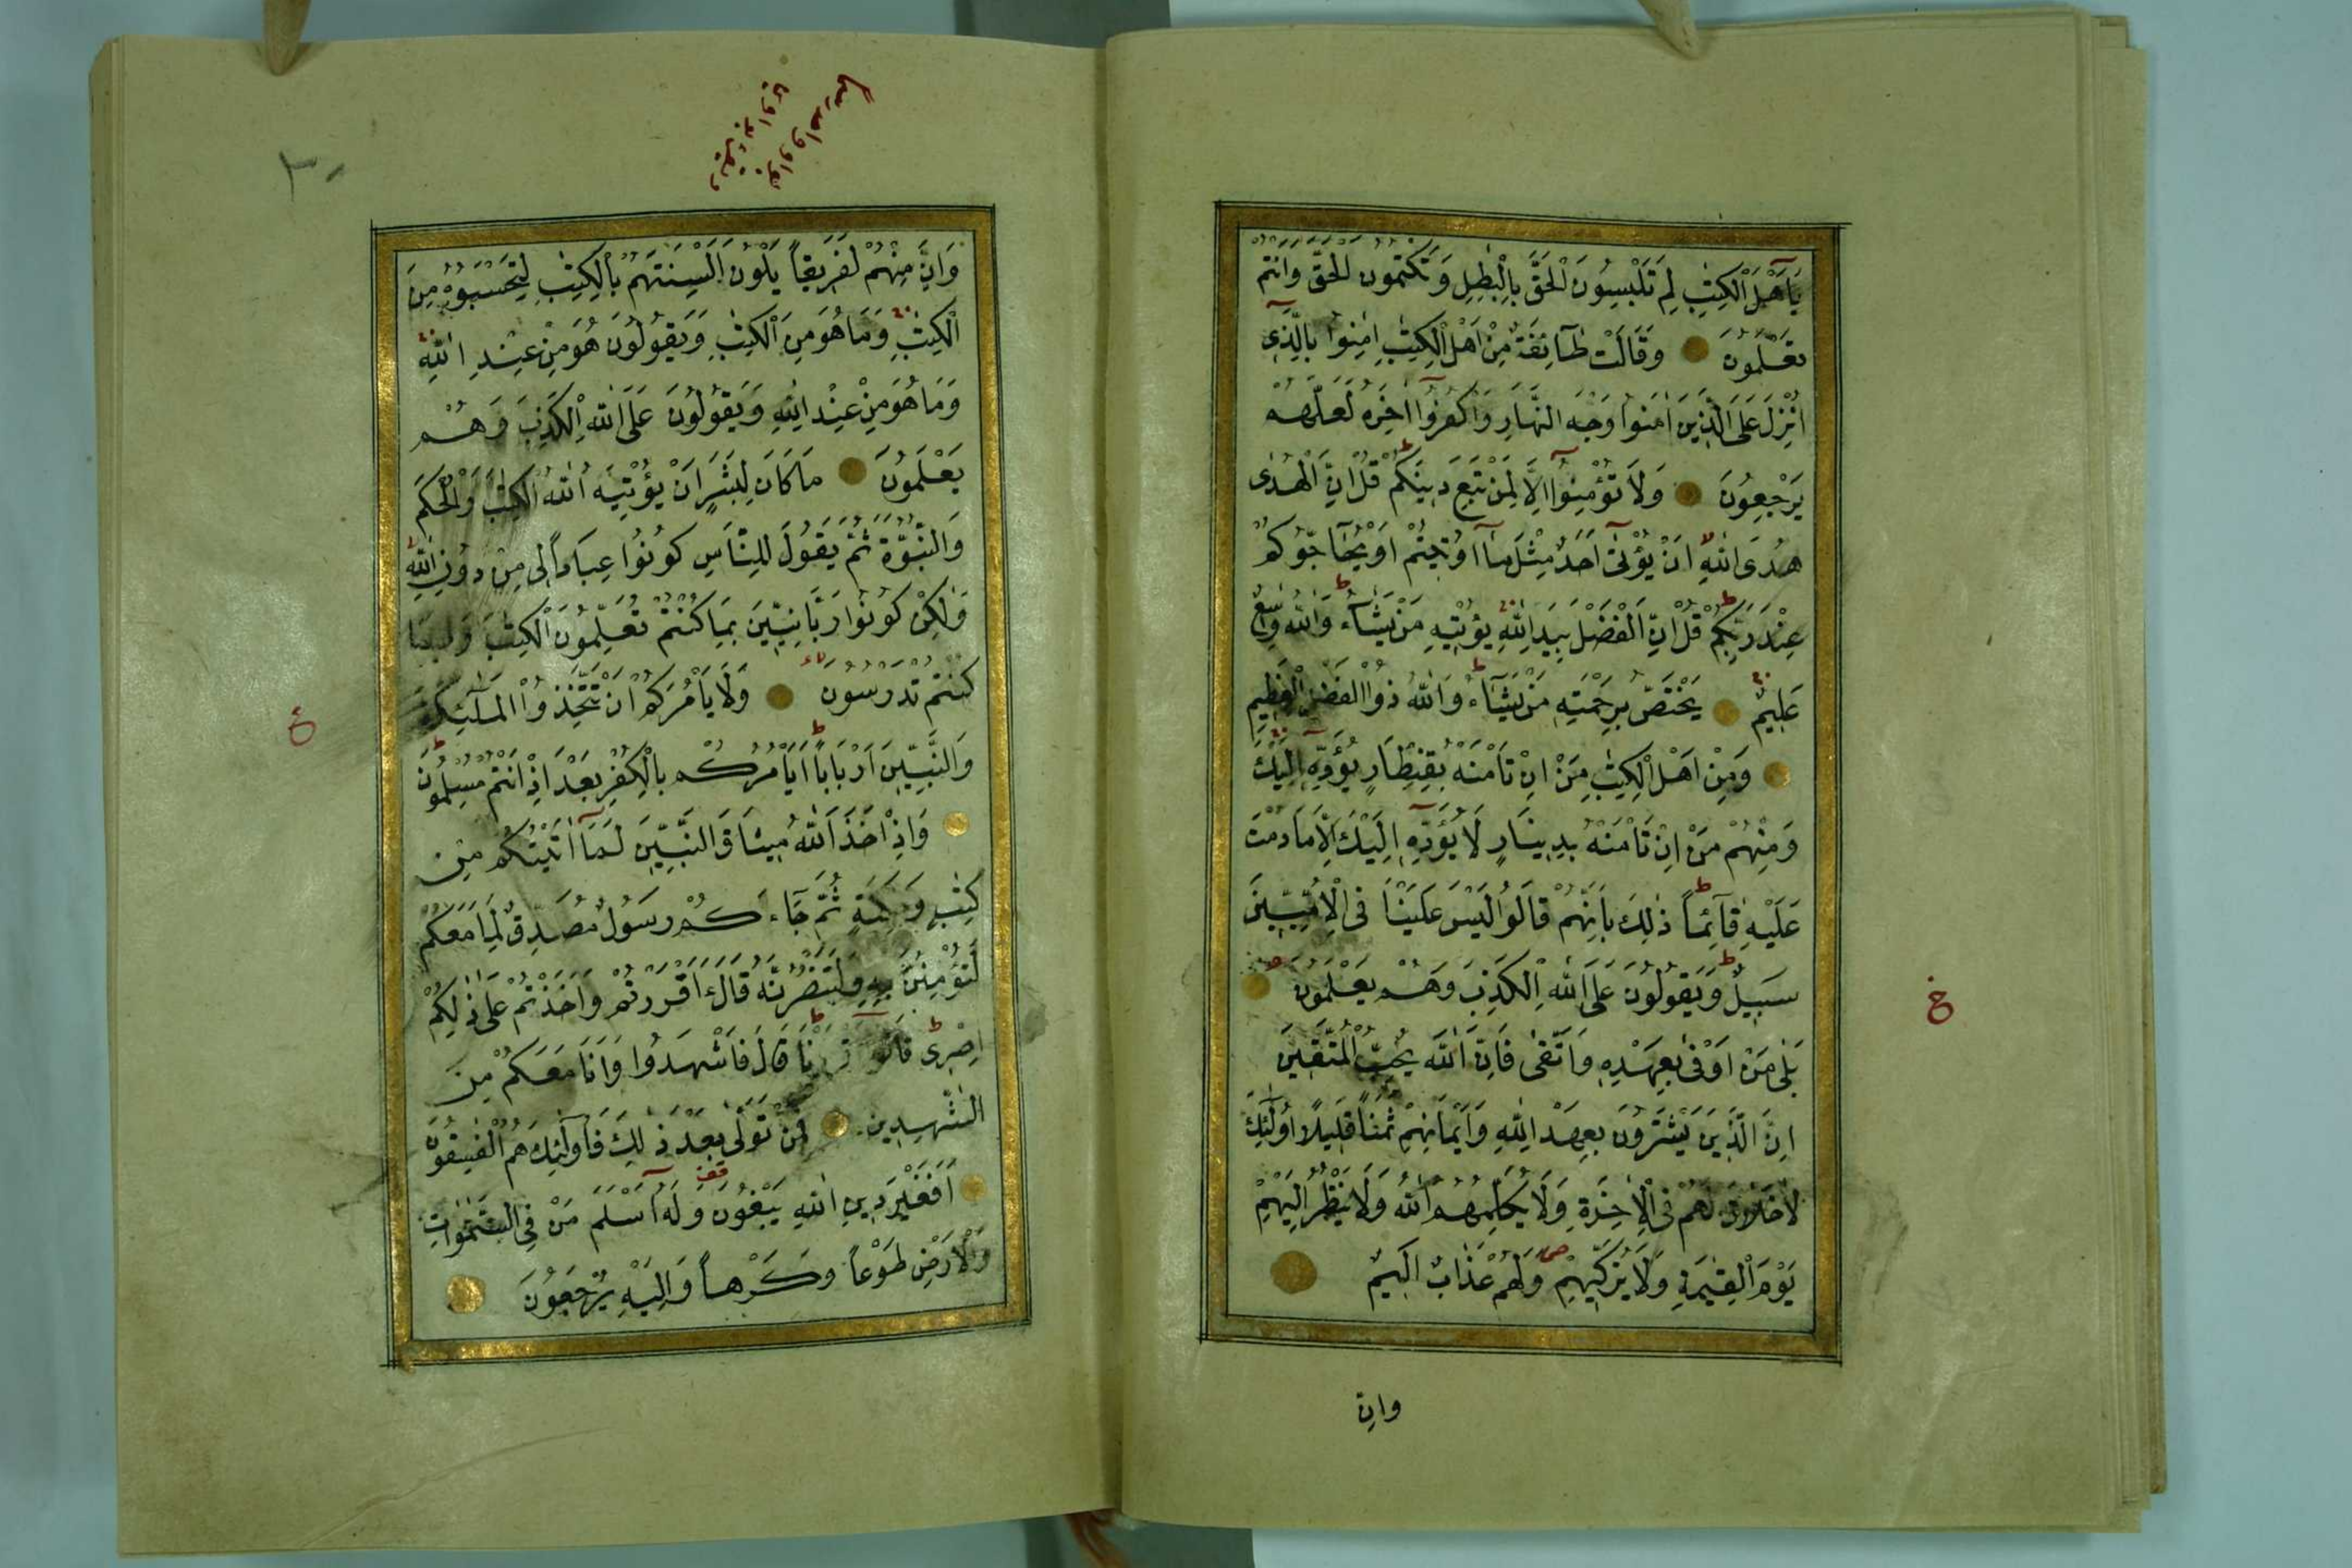 يَآ اَهْلَ الْكِتٰبِ لِمَ تَلْبِسُونَ الْحَقَّ بِالْبٰطِلِ وَتَكْتُمُونَ الْحَقَّ وَاَنْتُمْ
تَعْلَمُونَ وَقَالَتْ طَآئِفَةٌ مِنْ اَهْلِ الْكِتٰبِ اٰمِنُوا بِالَّذِى
اُنْزِلَ عَلَى الَّذِينَ اٰمَنُوا وَجْهَ النَّهَارِ وَاكْفُرُوا اٰخِرَهُ لَعَلَّهُمْ
يَرْجِعُونَ وَلَا تُؤْمِنُوا اِلَّا لِمَنْ تَبِعَ دِينَكُمْ قُلْ اِنَّ الْهُدٰى
هُدَى اللّٰهِ اَنْ يُؤْتٰى اَحَدٌ مِثْلَ مَآ اُوتِيتُمْ اَوْ يُحَآجُّوكُمْ
عِنْدَ رَبِّكُمْ قُلْ اِنَّ الْفَضْلَ بِيَدِ اللّٰهِ يُؤْتِيهِ مَنْ يَشَآءُ وَاللّٰهُ وَاسِعٌ
عَلِيمٌ يَخْتَصُّ بِرَحْمَتِهِ مَنْ يَشَآءُ وَاللّٰهُ ذُوا الْفَضْلِ الْعَظِيمِ
وَمِنْ اَهْلِ الْكِتٰبِ مَنْ اِنْ تَأْمَنْهُ بِقِنْطَارٍ يُؤَدِّهِ اِلَيْكَ
وَمِنْهُمْ مَنْ اِنْ تَأْمَنْهُ بِدِينَارٍ لَا يُؤَدِّهِ اِلَيْكَ اِلَّا مَا دُمْتَ
عَلَيْهِ قَآئِمًا ذٰلِكَ بِاَنَّهُمْ قَالُوا لَيْسَ عَلَيْنَا فِى الْاُمِّيِّينَ
سَبِيلٌ وَيَقُولُونَ عَلَى اللّٰهِ الْكَذِبَ وَهُمْ يَعْلَمُونَ
بَلٰى مَنْ اَوْفٰى بِعَهْدِهِ وَاتَّقٰى فَاِنَّ اللّٰهَ يُحِبُّ الْمُتَّقِينَ
اِنَّ الَّذِينَ يَشْتَرُونَ بِعَهْدِ اللّٰهِ وَاَيْمَانِهِمْ ثَمَنًا قَلِيلًا اُولٰٓئِكَ
لَا خَلَاقَ لَهُمْ فِى الْاٰخِرَةِ وَلَا يُكَلِّمُهُمُ اللّٰهُ وَلَا يَنْظُرُ اِلَيْهِمْ
يَوْمَ الْقِيٰمَةِ وَلَا يُزَكِّيهِمْ وَلَهُمْ عَذَابٌ اَلِيمٌ
وان
وَاِنَّ مِنْهُمْ لَفَرِيقًا يَلْوُنَ اَلْسِنَتَهُمْ بِالْكِتٰبِ لِتَحْسَبُوهُ مِنَ
الْكِتٰبِ وَمَا هُوَ مِنَ الْكِتٰبِ وَيَقُولُونَ هُوَ مِنْ عِنْدِ اللّٰهِ
وَمَا هُوَ مِنْ عِنْدِ اللّٰهِ وَيَقُولُونَ عَلَى اللّٰهِ الْكَذِبَ وَهُمْ
يَعْلَمُونَ مَا كَانَ لِبَشَرٍ اَنْ يُؤْتِيَهُ اللّٰهُ الْكِتٰبَ وَالْحُكْمَ
وَالنُّبُوَّةَ ثُمَّ يَقُولَ لِلنَّاسِ كُونُوا عِبَادًا لِى مِنْ دُونِ اللّٰهِ
وَلٰكِنْ كُونُوا رَبَّانِيِّينَ بِمَا كُنْتُمْ تُعَلِّمُونَ الْكِتٰبَ وَبِمَا
كُنْتُمْ تَدْرُسُونَ وَلَا يَأْمُرَكُمْ اَنْ تَتَّخِذُوا الْمَلٰٓئِكَةَ
وَالنَّبِيِّينَ اَرْبَابًا اَيَأْمُرُكُمْ بِالْكُفْرِ بَعْدَ اِذْ اَنْتُمْ مُسْلِمُونَ
وَاِذْ اَخَذَ اللّٰهُ مِيثَاقَ النَّبِيِّينَ لَمَآ اٰتَيْتُكُمْ مِنْ
كِتٰبٍ وَحِكْمَةٍ ثُمَّ جَآءَكُمْ رَسُولٌ مُصَدِّقٌ لِمَا مَعَكُمْ
لَتُؤْمِنُنَّ بِهِ وَلَتَنْصُرُنَّهُ قَالَ ءَاَقْرَرْتُمْ وَاَخَذْتُمْ عَلٰى ذٰلِكُمْ
اِصْرِى قَالُوا اَقْرَرْنَا قَالَ فَاشْهَدُوا وَاَنَا مَعَكُمْ مِنَ
الشّٰهِدِينَ فَمَنْ تَوَلّٰى بَعْدَ ذٰلِكَ فَاُولٰٓئِكَ هُمُ الْفٰسِقُونَ
اَفَغَيْرَ دِينِ اللّٰهِ يَبْغُونَ وَلَهُ اَسْلَمَ مَنْ فِى السَّمٰوٰاتِ
وَالْاَرْضِ طَوْعًا وَكَرْهًا وَاِلَيْهِ يُرْجَعُونَ